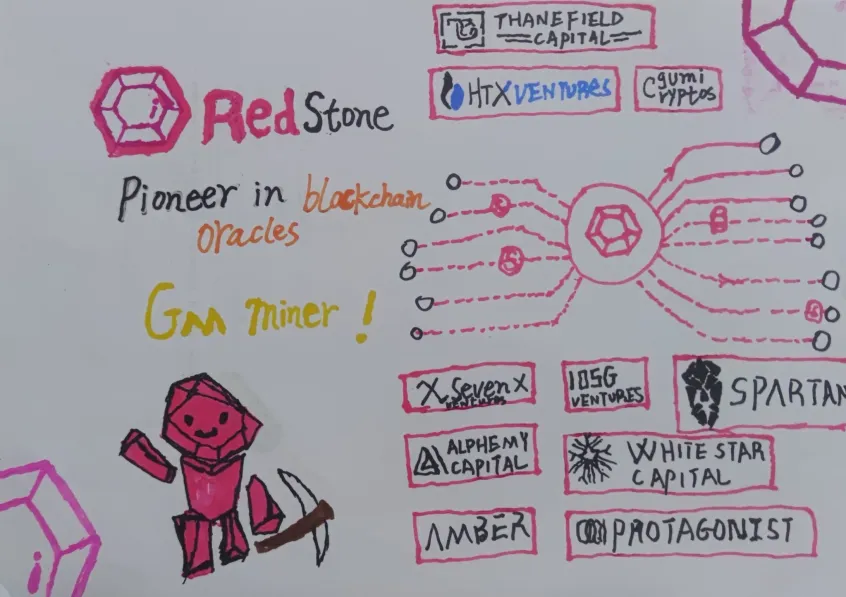 RedStone
Pioneer in blockchain
oracles
GM miner !
THANEFIELD
CAPITAL
HTX VENTURES
gumi
Cryptos
SevenX
VENTURES
IOSG
VENTURES
SPARTAN
ALPHEMY
CAPITAL
WHITE STAR
CAPITAL
AMBER
PROTAGONIST